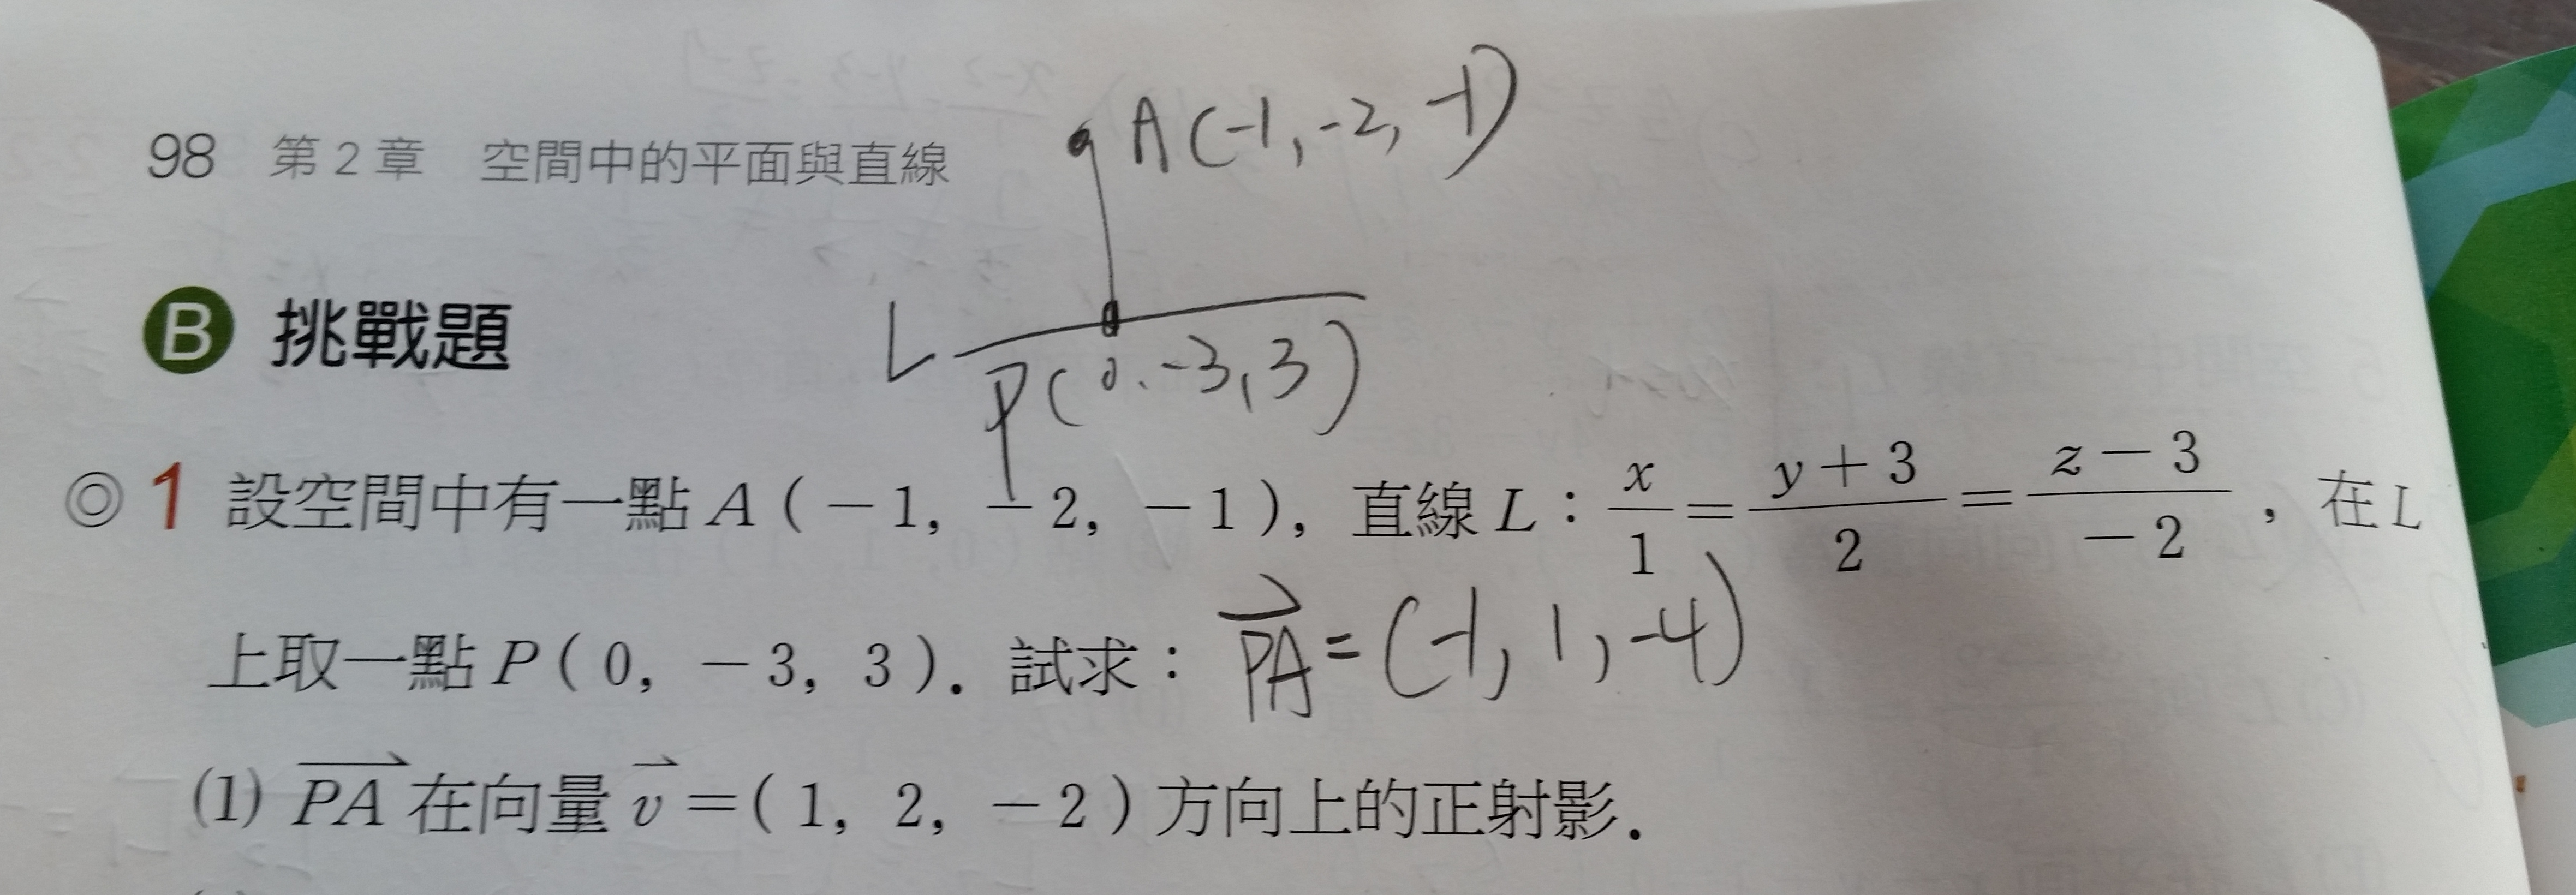 A(-1,-2,-1)
98 第2章 空間中的平面與直線
B 挑戰題
L
P(0,-3,3)
◎1 設空間中有一點 A(-1, -2, -1), 直線 L: x/1 = (y+3)/2 = (z-3)/-2, 在 L
上取一點 P(0, -3, 3). 試求: PA⃗=(-1,1,-4)
(1) PA⃗ 在向量 v⃗=(1, 2, -2)方向上的正射影.